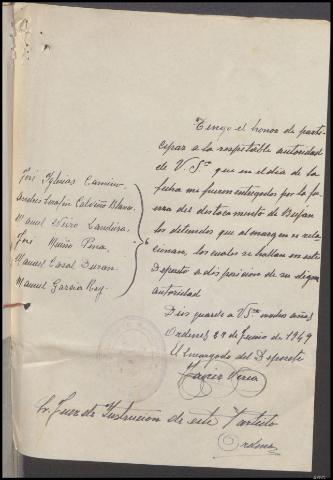 Tengo el honor de parti-
cipar a la respetable autoridad
de V.Sª que en el dia de la
fecha me fueron entregados por la fuer
za del destacamento de Buján
los detenidos que al margen se rela-
cionan, los cuales se hallan en este
Deposito a disposicion de su digna
autoridad
José Iglesias
Andres Serafin Calviño Blanco
Manuel Neiro
José Muiño Pena
Manuel Casal Duran
Manuel Garcia Rey
Dios guarde a V.Sª muchos años
Ordenes 29 de Junio de 1949
El Encargado del Deposito
Sr. Juez de Instrucion de este Partido
Ordenes